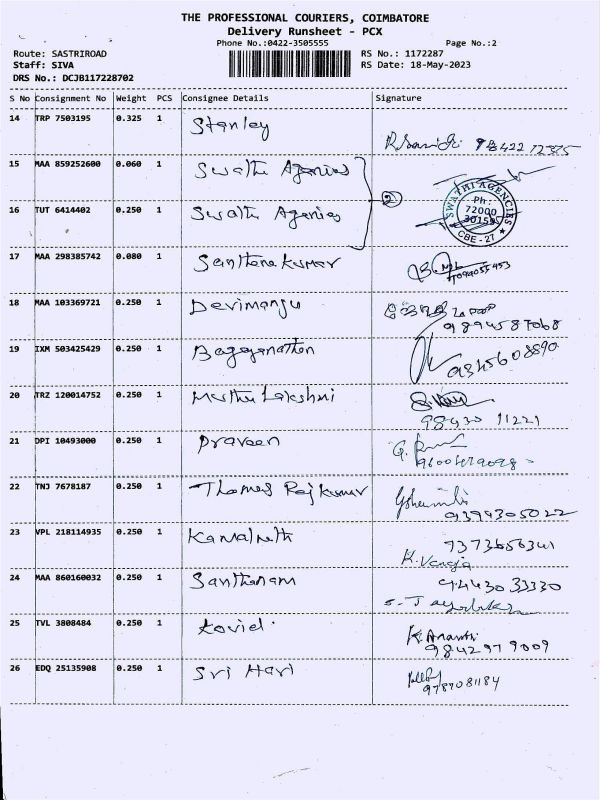 THE PROFESSIONAL COURIERS, COIMBATORE
Delivery Runsheet - PCX
Phone No.:0422-3505555 Page No.:2
Route: SASTRIROAD RS No.: 1172287
Staff: SIVA RS Date: 18-May-2023
DRS No.: DCJB117228702
S No Consignment No Weight PCS Consignee Details Signature
14 TRP 7503195 0.325 1 Stanley
15 MAA 859252600 0.060 1 Swathi Agenies
16 TUT 6414402 0.250 1 Swathi Agenies 2
SWATHI AGENCIES
Ph :
72000
30155
CBE - 27
17 MAA 298385742 0.080 1 Santhana kumar
18 MAA 103369721 0.250 1 Devimanju
9894587068
19 IXM 503425429 0.250 1
9345608890
20 TRZ 120014752 0.250 1 Muthu Lakshmi
98430 11221
21 DPI 10493000 0.250 1 praveen
22 TNJ 7678187 0.250 1 Thomas Rajkumar
9394305022
23 VPL 218114935 0.250 1 Kamalnath 7373656341
24 MAA 860160032 0.250 1 Santhanam 94430 33330
25 TVL 3808484 0.250 1 Kovid. K Ananthi
9842979009
26 EDQ 25135908 0.250 1 Sri Hari
9787081184